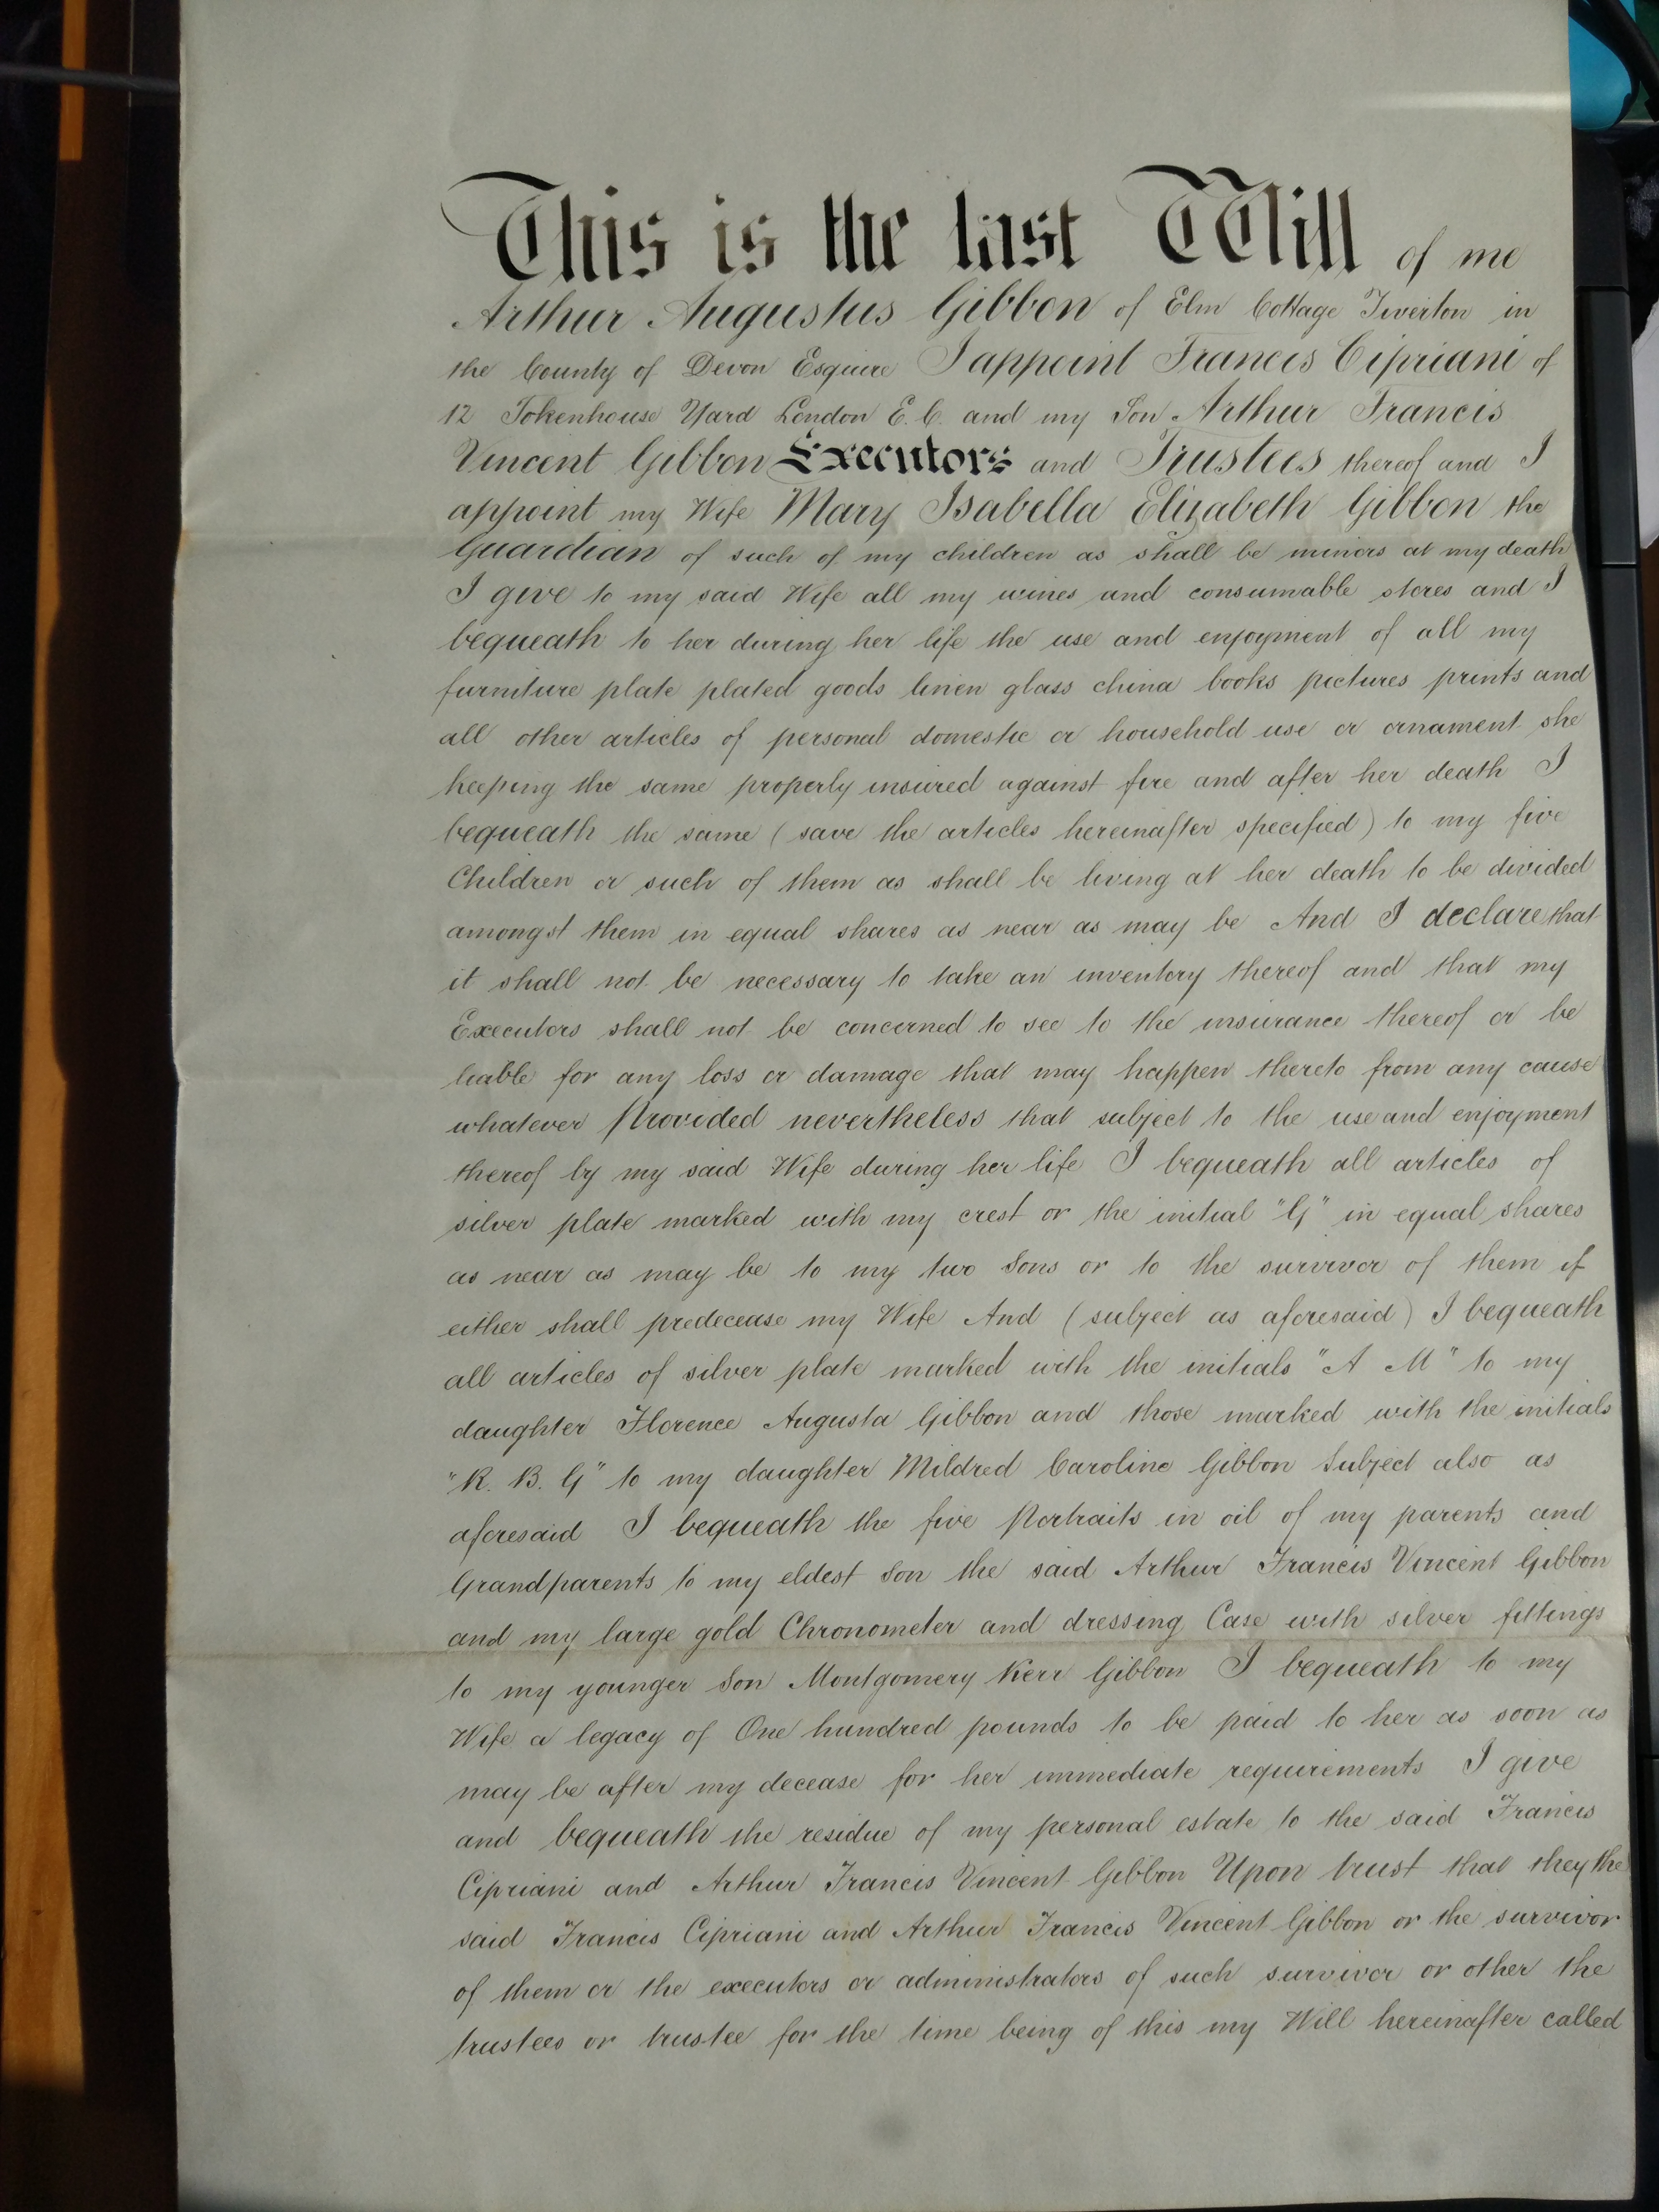 This is the last Will of me
Arthur Augustus Gibbon of Elm Cottage Tiverton in
the County of Devon Esquire I appoint Francis Cipriani of
12 Tokenhouse Yard London E.C. and my Son Arthur Francis
Vincent Gibbon Executors and Trustees thereof and I
appoint my Wife Mary Isabella Elizabeth Gibbon the
Guardian of such of my children as shall be minors at my death
I give to my said Wife all my wines and consumable stores and I
bequeath to her during her life the use and enjoyment of all my
furniture plate plated goods linen glass china books pictures prints and
all other articles of personal domestic or household use or ornament she
keeping the same properly insured against fire and after her death I
bequeath the same (save the articles hereinafter specified) to my five
Children or such of them as shall be living at her death to be divided
amongst them in equal shares as near as may be And I declare that
it shall not be necessary to take an inventory thereof and that my
Executors shall not be concerned to see to the insurance thereof or be
liable for any loss or damage that may happen thereto from any cause
whatever Provided nevertheless that subject to the use and enjoyment
thereof by my said Wife during her life I bequeath all articles of
silver plate marked with my crest or the initial "G" in equal shares
as near as may be to my two Sons or to the survivor of them if
either shall predecease my Wife And (subject as aforesaid) I bequeath
all articles of silver plate marked with the initials "A M" to my
daughter Florence Augusta Gibbon and those marked with the initials
"R. B. G" to my daughter Mildred Caroline Gibbon Subject also as
aforesaid I bequeath the five Portraits in oil of my parents and
Grandparents to my eldest Son the said Arthur Francis Vincent Gibbon
and my large gold Chronometer and dressing Case with silver fittings
to my younger Son Montgomery Kerr Gibbon I bequeath to my
Wife a legacy of One hundred pounds to be paid to her as soon as
may be after my decease for her immediate requirements I give
and bequeath the residue of my personal estate to the said Francis
Cipriani and Arthur Francis Vincent Gibbon Upon trust that they the
said Francis Cipriani and Arthur Francis Vincent Gibbon or the survivor
of them or the executors or administrators of such survivor or other the
trustees or trustee for the time being of this my Will hereinafter called